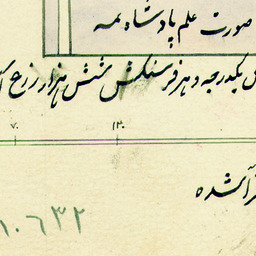 صورت علم پادشاه نمسه
یکدرجه و هر فرسنکش شش هزار زرع
۷۰ ۱۳۰
شده
۱۰۶۳۲